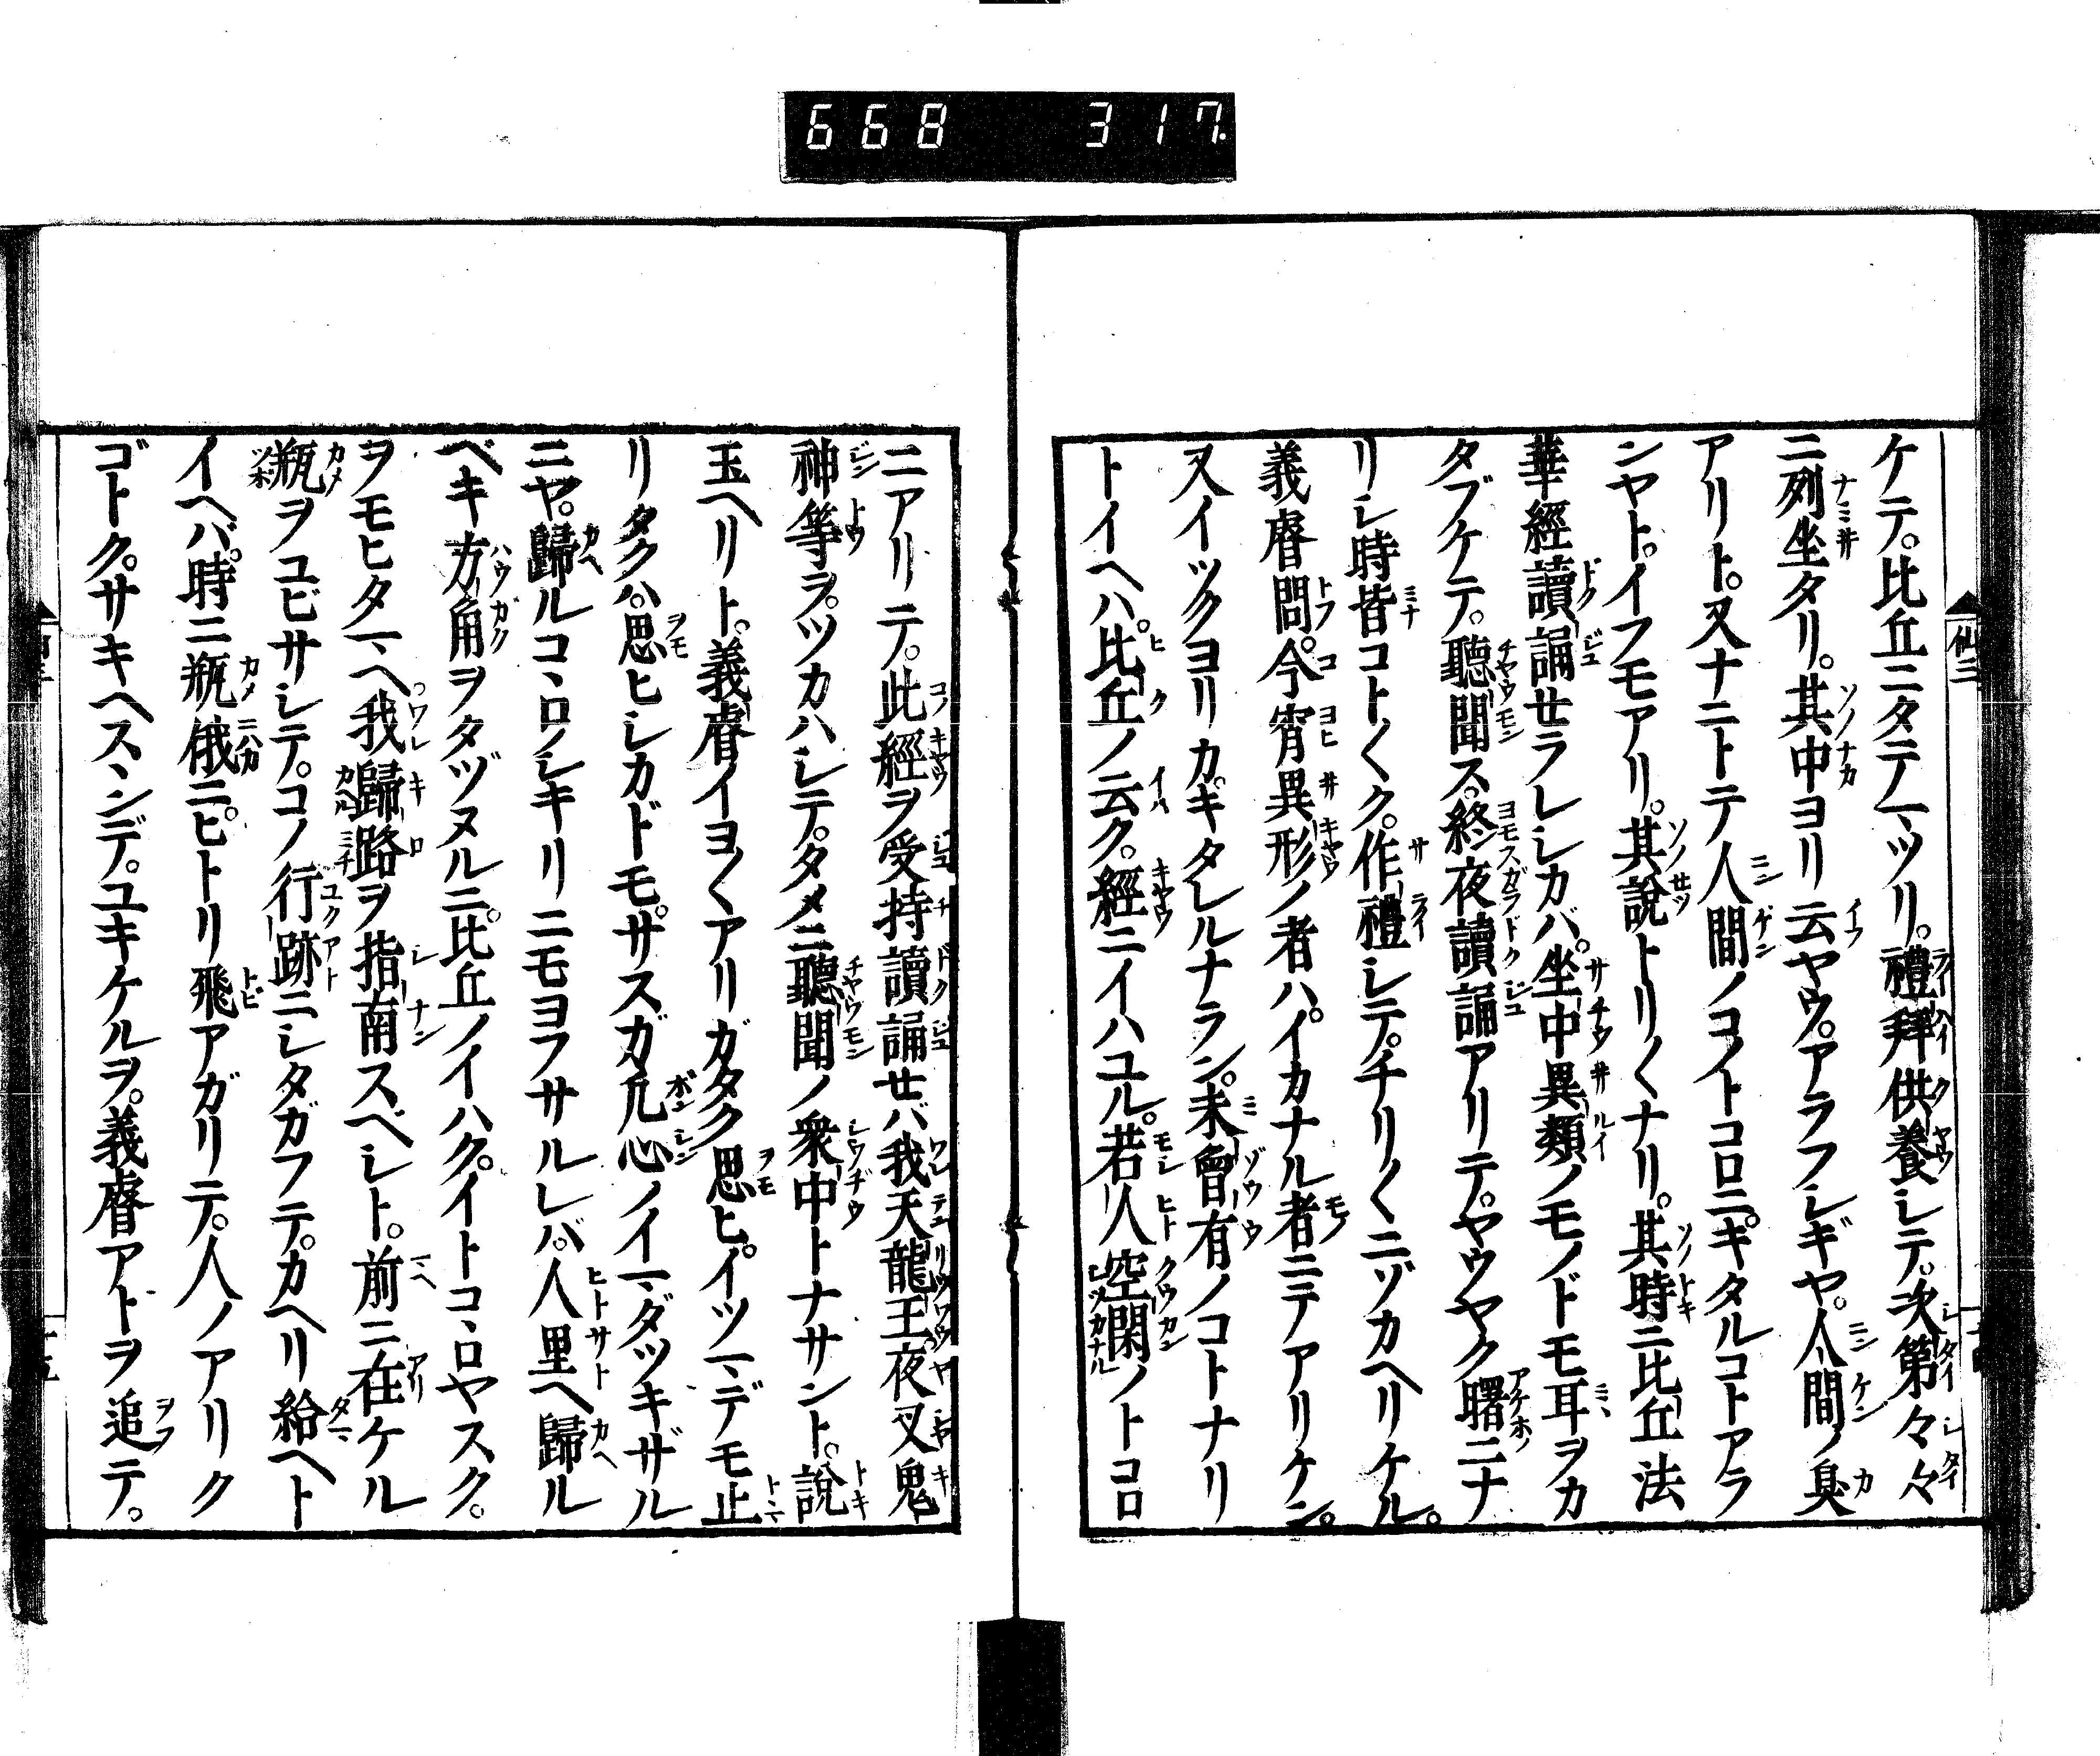 668 317
ケテ。比丘ニタテマツリ。禮拜供養シテ。次第々々
ニ列坐タリ。其中ヨリ云ヤウ。アラフシギヤ。人間ノ臭
アリト。又ナニトテ人間ノコノトコロニ。キタルコトアラ
ンヤト。イフモアリ。其說トリ〱ナリ。其時ニ比丘法
華經讀誦せラレシカバ。坐中異類ノモノドモ耳ヲカ
タブケテ。聽聞ス。終夜讀誦アリテ。ヤウヤク曙ニナ
リシ時皆コト〱ク。作禮シテ。チリ〱ニゾカヘリケル。
義睿問。今宵異形ノ者ハ。イカナル者ニテアリケン。
又イツクヨリカ。キタレルナラン。未曾有ノコトナリ
トイヘハ。比丘ノ云ク。經ニイハユル。若人空閑ノトコロ
ニアリテ。此經ヲ受持讀誦せバ我天龍王夜叉鬼
神等ヲ。ツカハシテ。タメニ聽聞ノ衆中トナサント。說
玉ヘリト。義睿イヨ〱アリガタク思ヒ。イツマデモ止
リタクハ。思ヒシカドモ。サスガ凡心ノイマダツキザル
ニヤ。歸ルコヽロノシキリニモヨフサルレバ。人里ヘ歸ル
ベキ方角ヲタヅヌルニ。比丘ノイハク。イトコヽロヤスク。
ヲモヒタマヘ。我歸路ヲ指南スベシト。前ニ在ケル
瓶ヲユビサシテ。コノ行跡ニシタガフテ。カヘリ給ヘト
イヘバ。時ニ瓶俄ニ。ヒトリ飛アガリテ。人ノアリク
ゴトク。サキヘスヽンデ。ユキケルヲ。義睿アトヲ追テ。